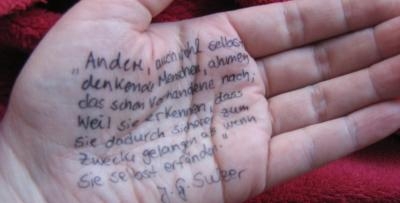 „Andere, auch wohl selbst
denkende Menschen, ahmen
das schon Vorhandene nach;
weil sie erkennen, dass
sie dadurch sicherer zum
Zwecke gelangen als wenn
sie selbst erfänden."
J. G. Sulzer